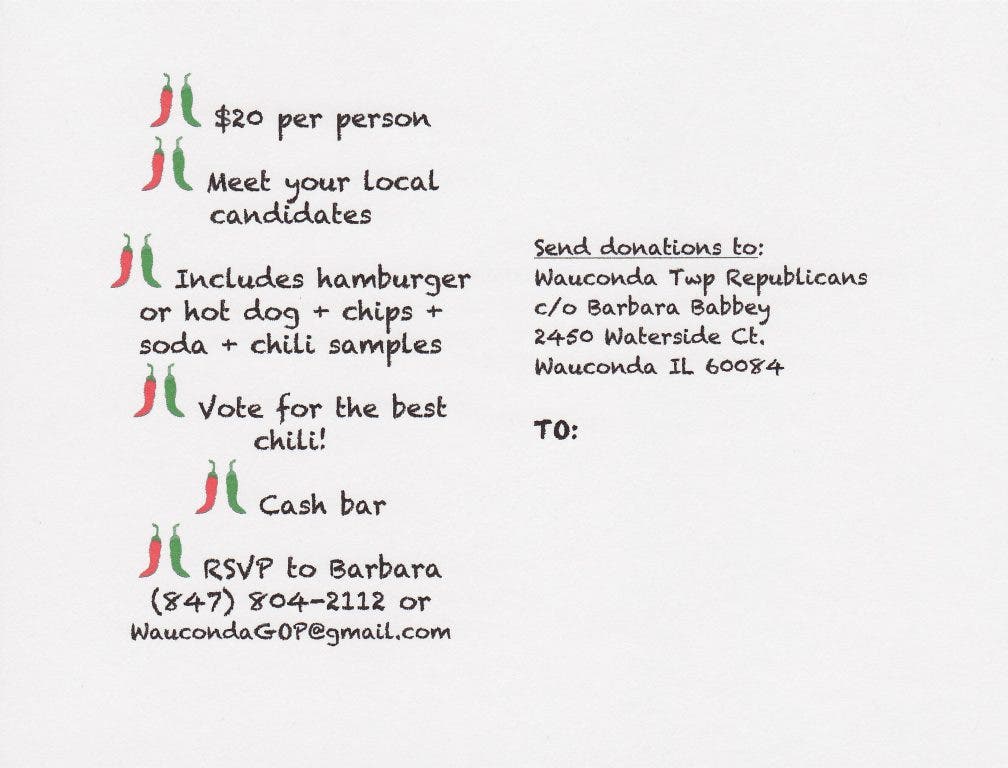 $20 per person
Meet your local
candidates
Includes hamburger
or hot dog + chips +
soda + chili samples
Vote for the best
chili!
Cash bar
RSVP to Barbara
(847) 804-2112 or
WaucondaGOP@gmail.com
Send donations to:
Wauconda Twp Republicans
c/o Barbara Babbey
2450 Waterside Ct.
Wauconda IL 60084
TO: